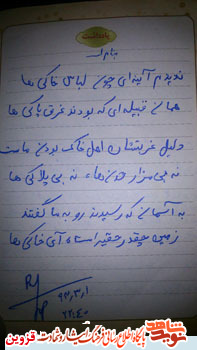 یادداشت
بنام او
ندیدم آینه‌ای چون لباس خاکی ها
همان قبیله ای که بودند غرق پاکی ها
دلیل غربتشان اهل خاک بودن ماست
نه بی مزار شدن ها، نه بی پلاکی ها
به آسمان که رسیدند رو به ما گفتند
زمین چقدر حقیر است، آی خاکی ها
۹۳,۳,۱
۲۲:۴۰
نوید شاهد
پایگاه اطلاع رسانی فرهنگ ایثار و شهادت قزوین